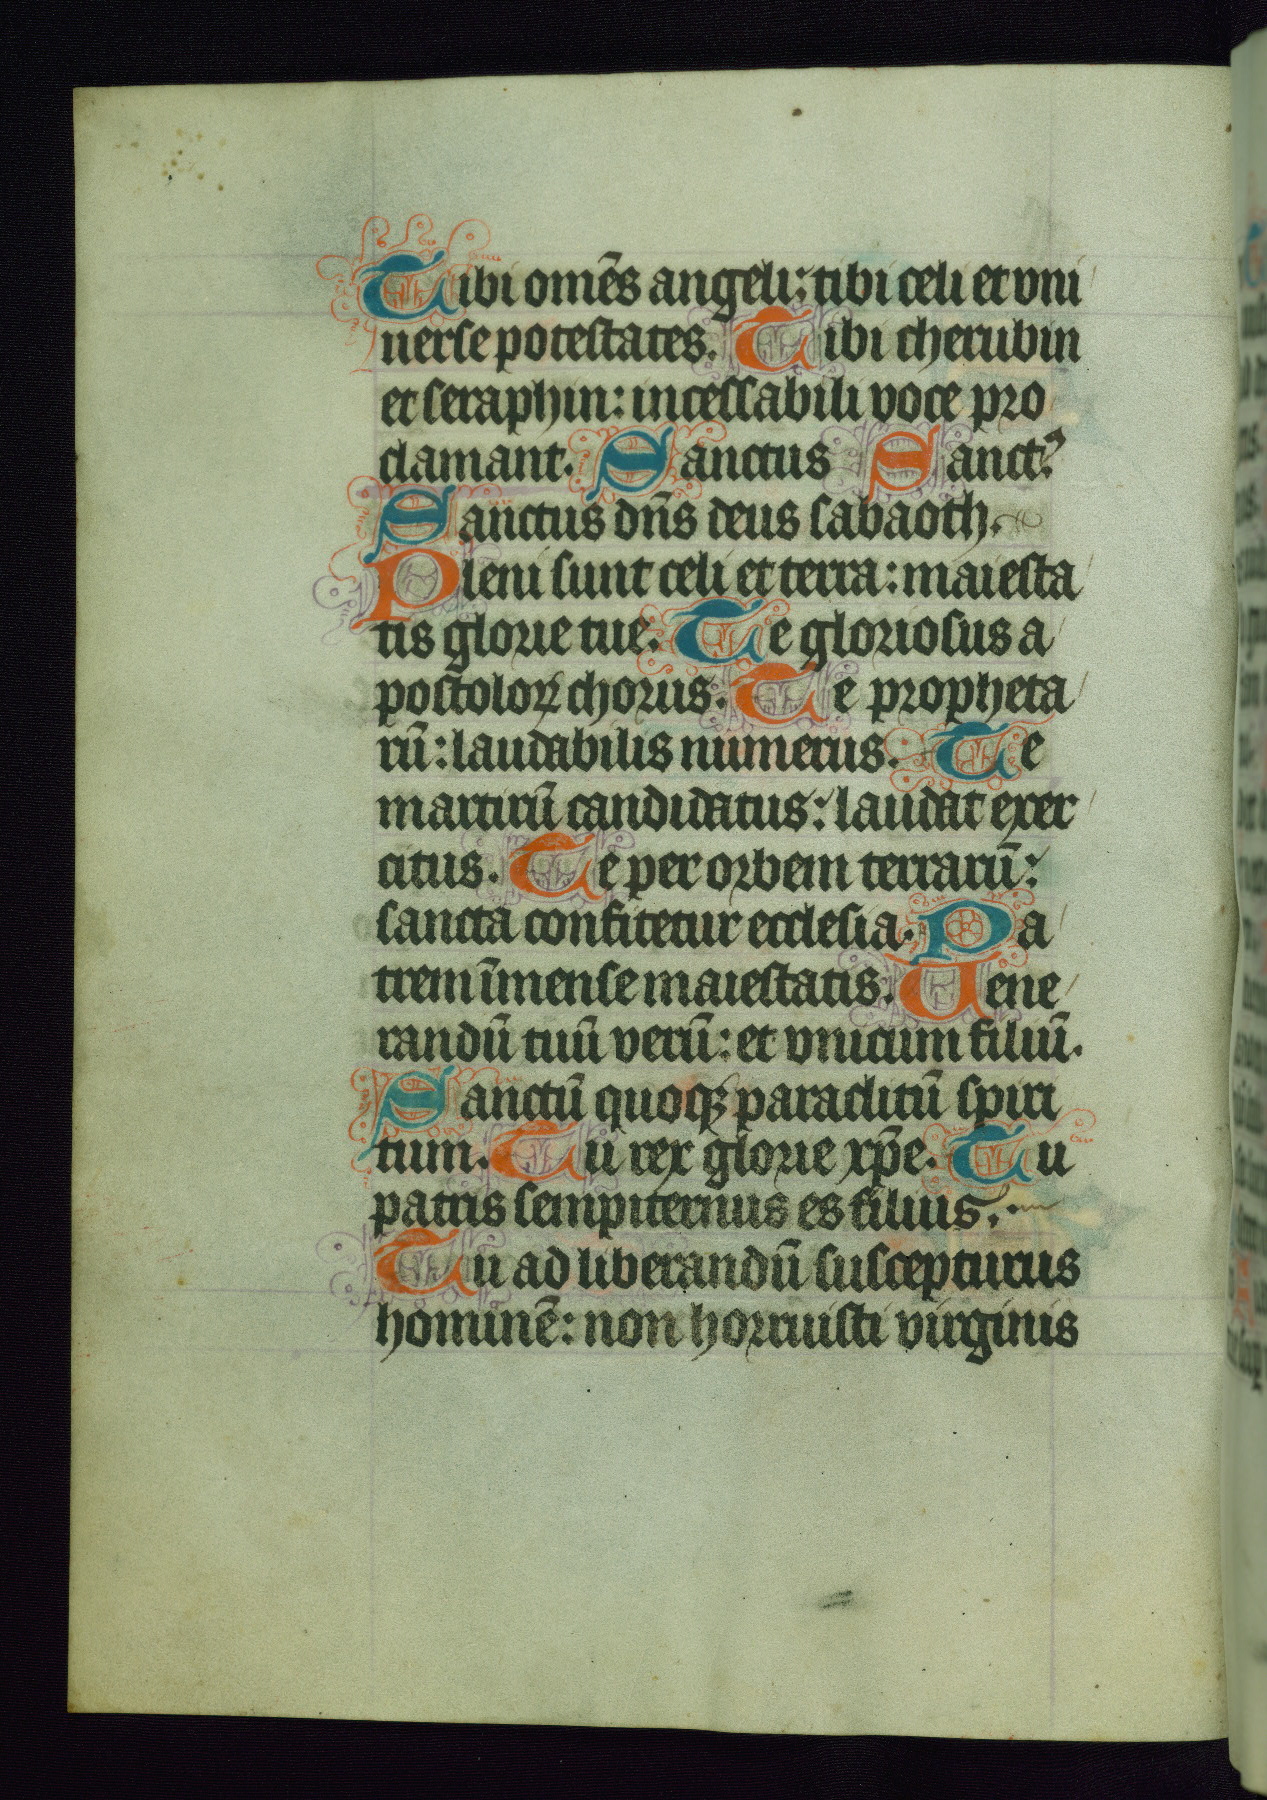 Tibi om̄es angeli: tibi celi et vni
uerse potestates. Tibi cherubin
et seraphin: incessabili voce pro
clamant. Sanctus Sanctꝰ
Sanctus dn̄s deus sabaoth.
Pleni sunt celi et terra: maiesta
tis glorie tue. Te gloriosus a
postoloꝝ chorus. Te propheta
rū: laudabilis numerus. Te
martirū candidatus: laudat exer
citus. Te per orbem terrarū:
sancta confitetur ecclesia. Pa
trem īmense maiestatis. Uene
randū tuū verū: et vnicum filiū.
Sanctū quoqꝫ paraclitū spiri
tum. Tu rex glorie xp̄e. Tu
patris sempiternus es filius.
Tu ad liberandū suscepturus
hominē: non horruisti virginis